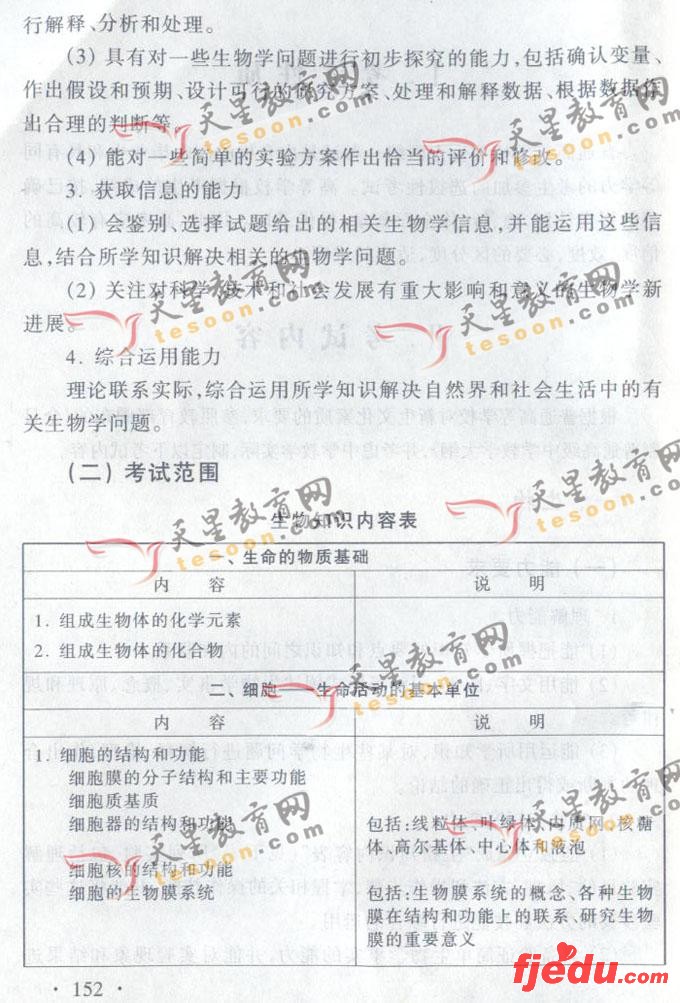 行解释、分析和处理。
(3) 具有对一些生物学问题进行初步探究的能力,包括确认变量、
作出假设和预期、设计可行的研究方案、处理和解释数据、根据数据作
出合理的判断等。
(4) 能对一些简单的实验方案作出恰当的评价和修改。
3. 获取信息的能力
(1) 会鉴别、选择试题给出的相关生物学信息,并能运用这些信
息,结合所学知识解决相关的生物学问题。
(2) 关注对科学、技术和社会发展有重大影响和意义的生物学新
进展。
4. 综合运用能力
理论联系实际,综合运用所学知识解决自然界和社会生活中的有
关生物学问题。
(二) 考试范围
生物知识内容表
一、生命的物质基础
内 容 说 明
1. 组成生物体的化学元素
2. 组成生物体的化合物
二、细胞——生命活动的基本单位
内 容 说 明
1. 细胞的结构和功能
细胞膜的分子结构和主要功能
细胞质基质
细胞器的结构和功能 包括:线粒体、叶绿体、内质网、核糖
体、高尔基体、中心体和液泡
细胞核的结构和功能
细胞的生物膜系统 包括:生物膜系统的概念、各种生物
膜在结构和功能上的联系、研究生物
膜的重要意义
· 152 ·
天星教育网
tesoon.com
天星教育网
tesoon.com
天星教育网
tesoon.com
天星教育网
tesoon.com
天星教育网
tesoon.com
天星教育网
tesoon.com
天星教育网
tesoon.com
天星教育网
tesoon.com
天星教育网
tesoon.com
天星教育网
tesoon.com
fjedu.com